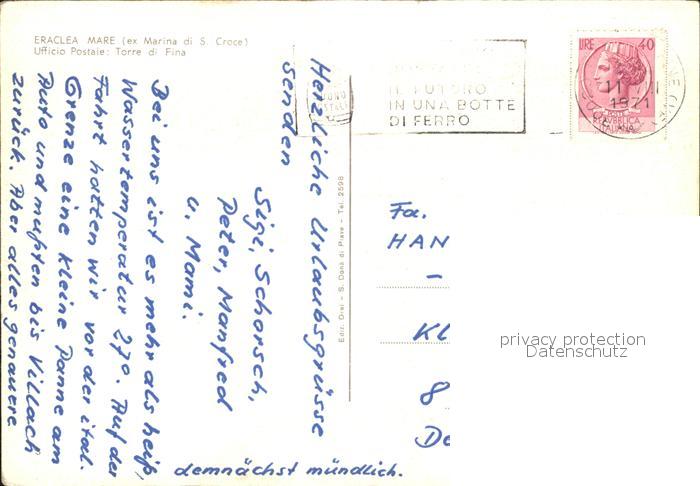 ERACLEA MARE (ex Marina di S. Croce)
Ufficio Postale: Torre di Fina
Herzliche Urlaubsgrüsse
senden
Sigi, Schorsch,
Peter, Manfred
u. Mami.
Bei uns ist es mehr als heiß,
Wassertemperatur 27°. Auf der
Fahrt hatten wir vor der ital.
Grenze eine kleine Panne am
Auto und mußten bis Villach
zurück. Aber alles genauere
demnächst mündlich.
Ediz. Orei - S. Donà di Piave - Tel. 2598
IL FUTURO
IN UNA BOTTE
DI FERRO
LIRE 40
11
1971
POSTE
REPUBBLICA
ITALIANA
Fa.
HAN
-
Kl
8
De
privacy protection
Datenschutz